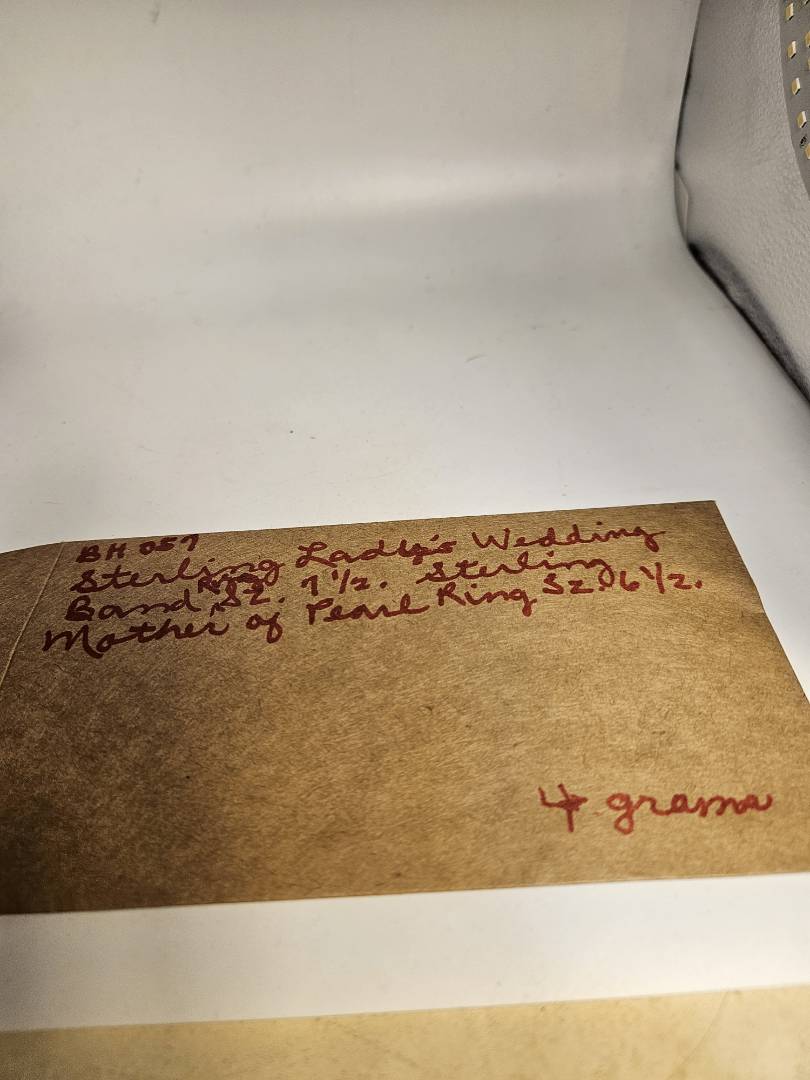 BH 057
Sterling Lady's Wedding
Band Ring Sz. 7 1/2. Sterling
Mother of Pearl Ring Sz. 6 1/2.
4 grams